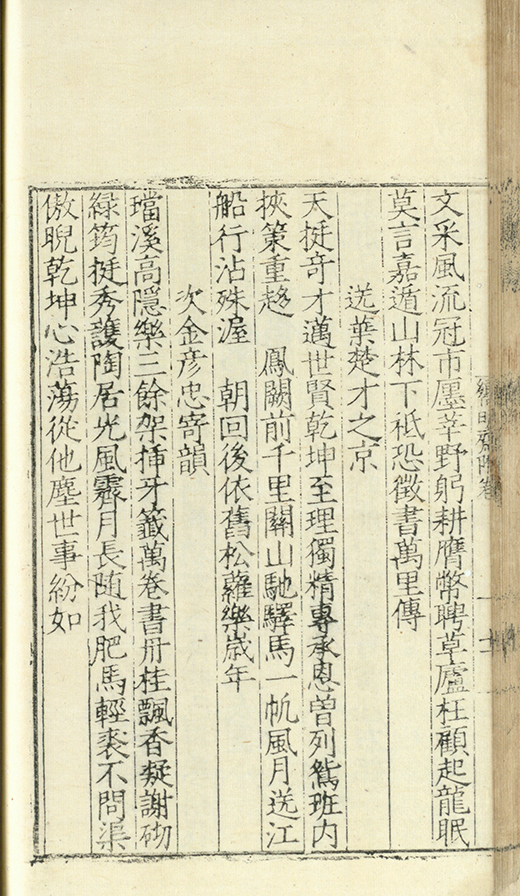 文采風流冠市廛莘野躬耕膺幣聘草廬枉顧起龍眠
莫言嘉遁山林下祗恐徵書萬里傳
送葉楚才之京
天挺奇才邁世賢乾坤至理獨精專承恩曽列鴛班内
挾策重趍　鳳闕前千里關山馳驛馬一帆風月送江
船行沾殊渥　朝回後依舊松蘿樂歳年
次金彦忠寄韻
璫溪高隱樂三餘架揷牙籤萬卷書丹桂飄香凝謝砌
緑筠挺秀護陶居光風霽月長随我肥馬輕裘不問渠
傲睨乾坤心浩蕩從他塵世事紛如